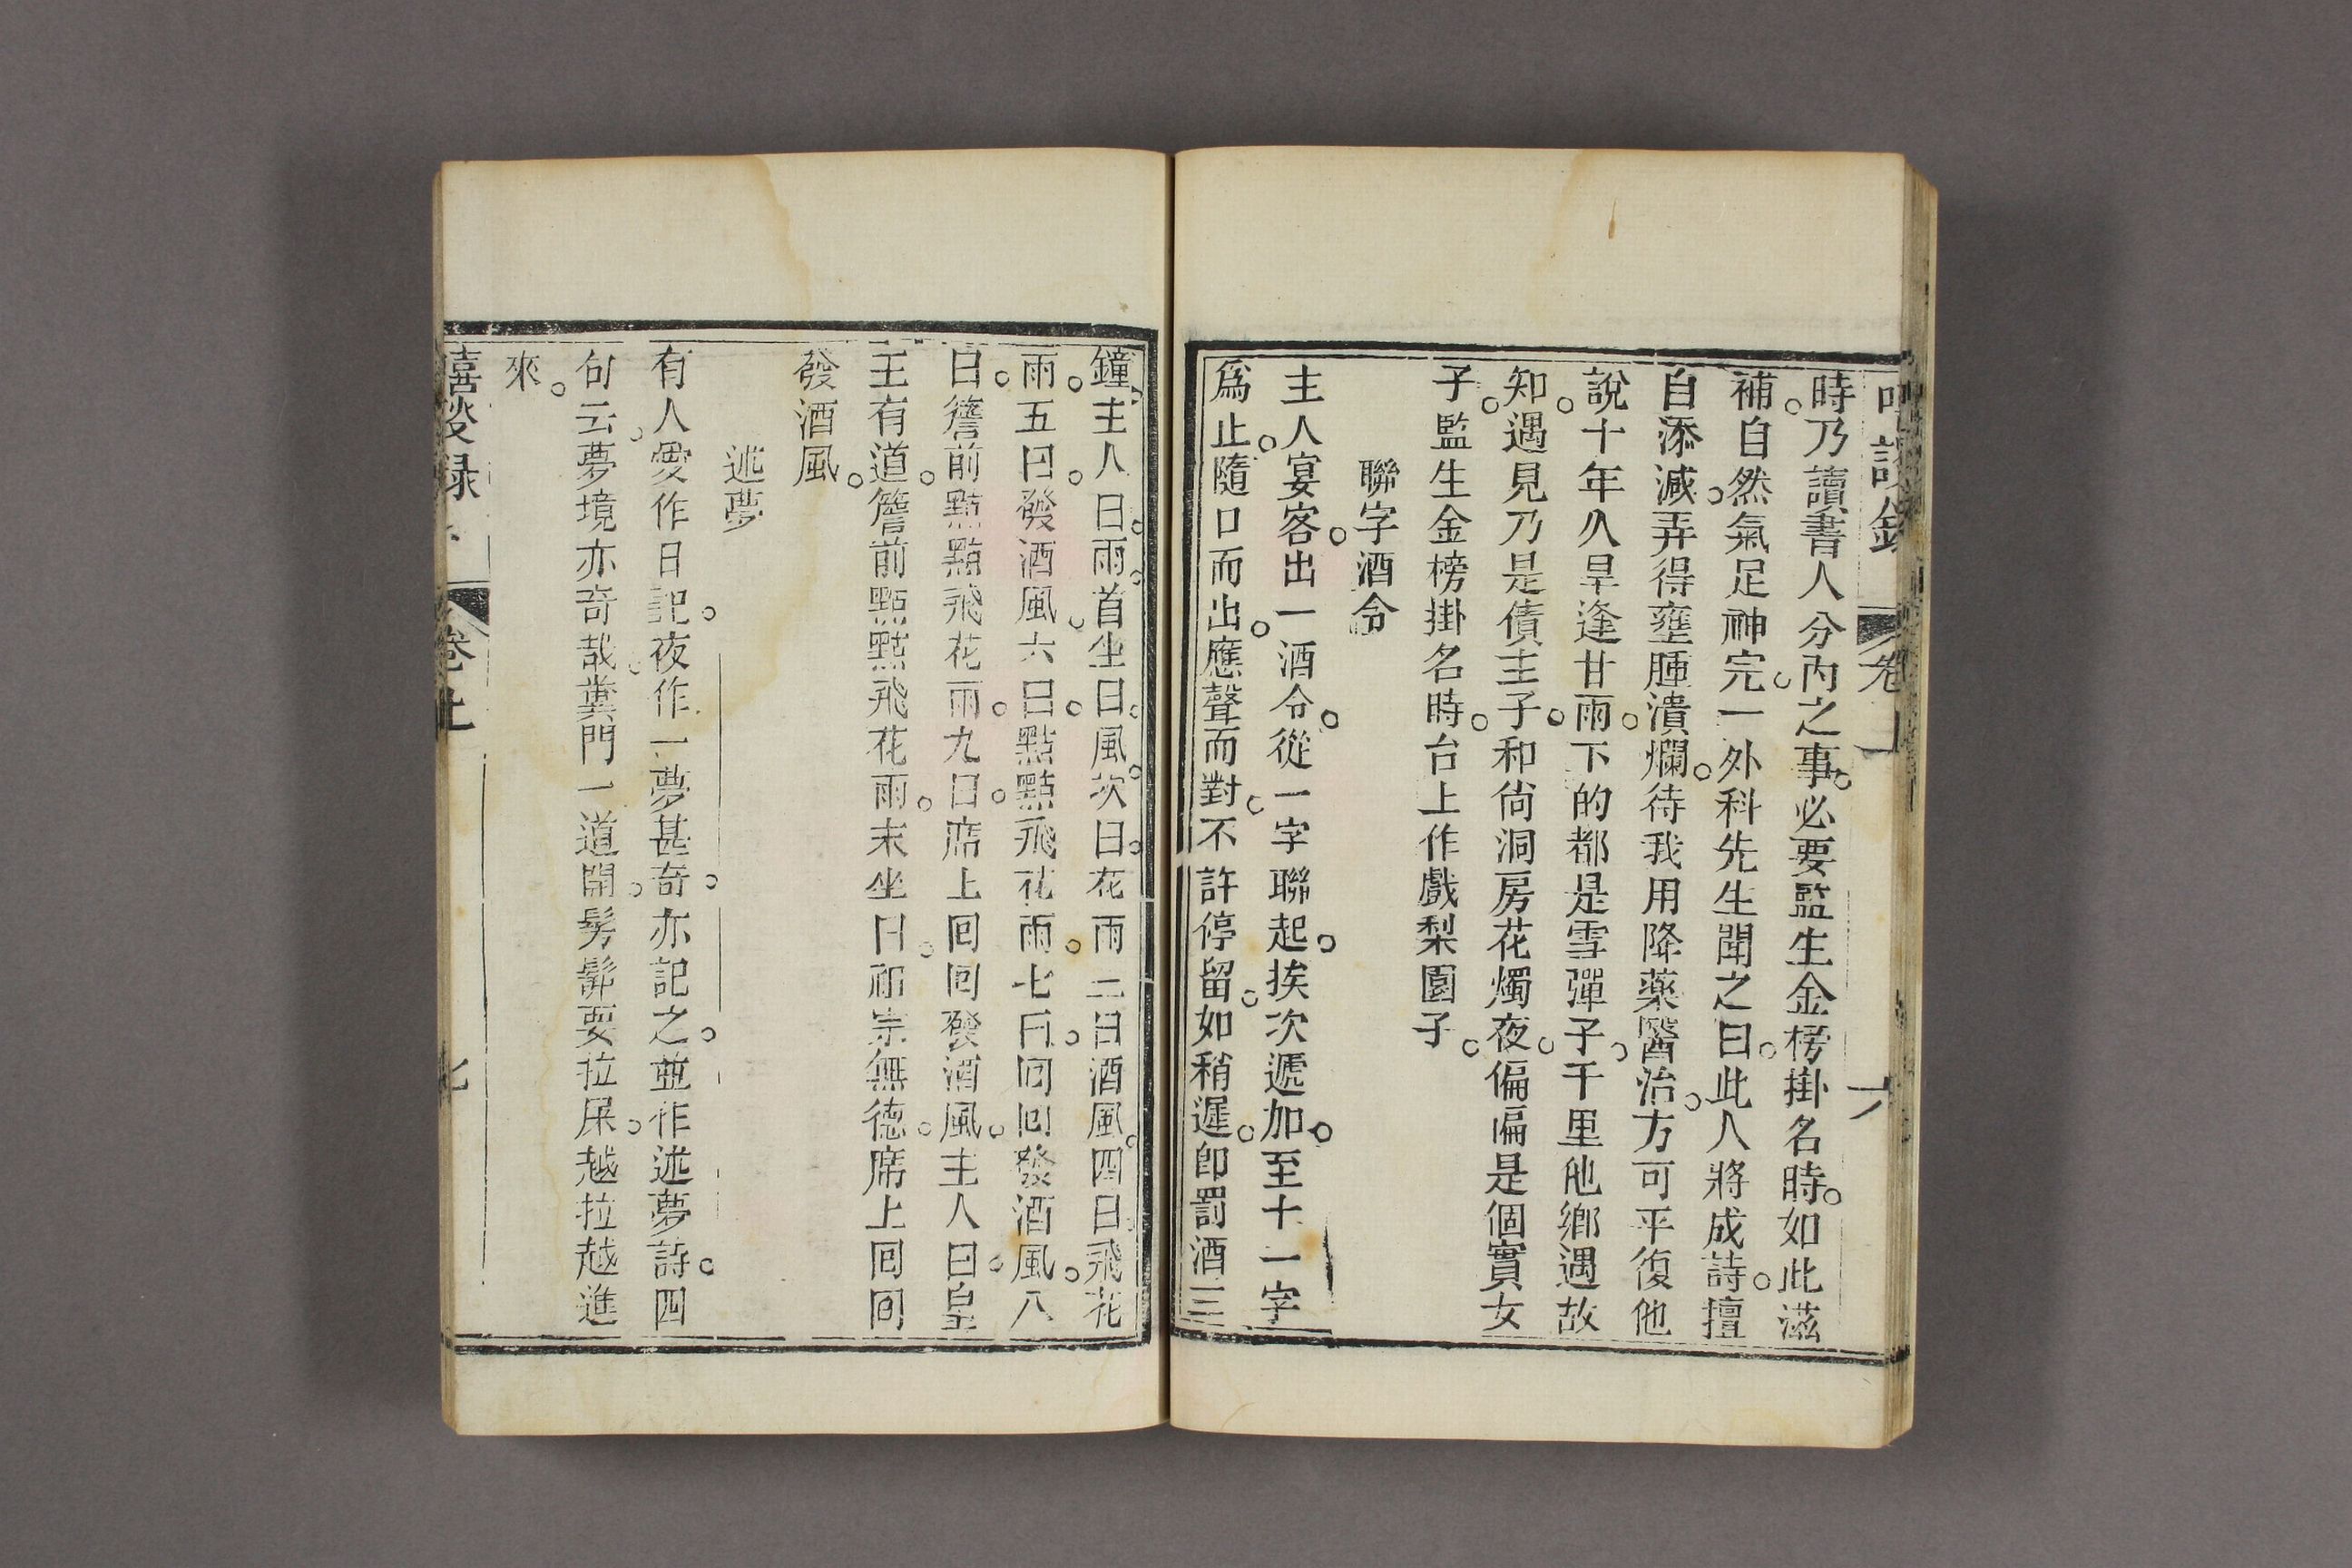 嘻談錄 卷上 六
時乃讀書人分內之事。必要監生金榜掛名時。如此滋
補。自然氣足神完。一外科先生聞之曰。此人將成詩。擅
自添減。弄得壅腫潰爛。待我用降藥醫治。方可平復。他
說十年久旱逢甘雨。下的都是雪彈子。千里他鄉遇故
知。遇見乃是債主子。和尚洞房花燭夜。偏偏是個實女
子。監生金榜掛名時。台上作戲梨園子。
聯字酒令
主人宴客。出一酒令。從一字聯起。挨次遞加。至十一字
爲止。隨口而出。應聲而對。不許停留。如稍遲。卽罰酒三
鐘。主人曰。雨。首坐曰。風。次曰。花雨二曰酒風。四曰。飛花
雨。五曰。發酒風。六曰。點點飛花雨。七曰。回回發酒風。八
曰。簷前點點飛花雨。九曰。席上回回發酒風。主人曰。皇
王有道。簷前點點飛花雨。末坐曰。祖宗無德。席上回回
發酒風。
述夢
有人愛作日記。夜作一夢甚奇。亦記之。並作述夢詩。四
句云。夢境亦奇哉。糞門一道開。髣髴要拉屎。越拉越進
來。
嘻談録 卷上 七